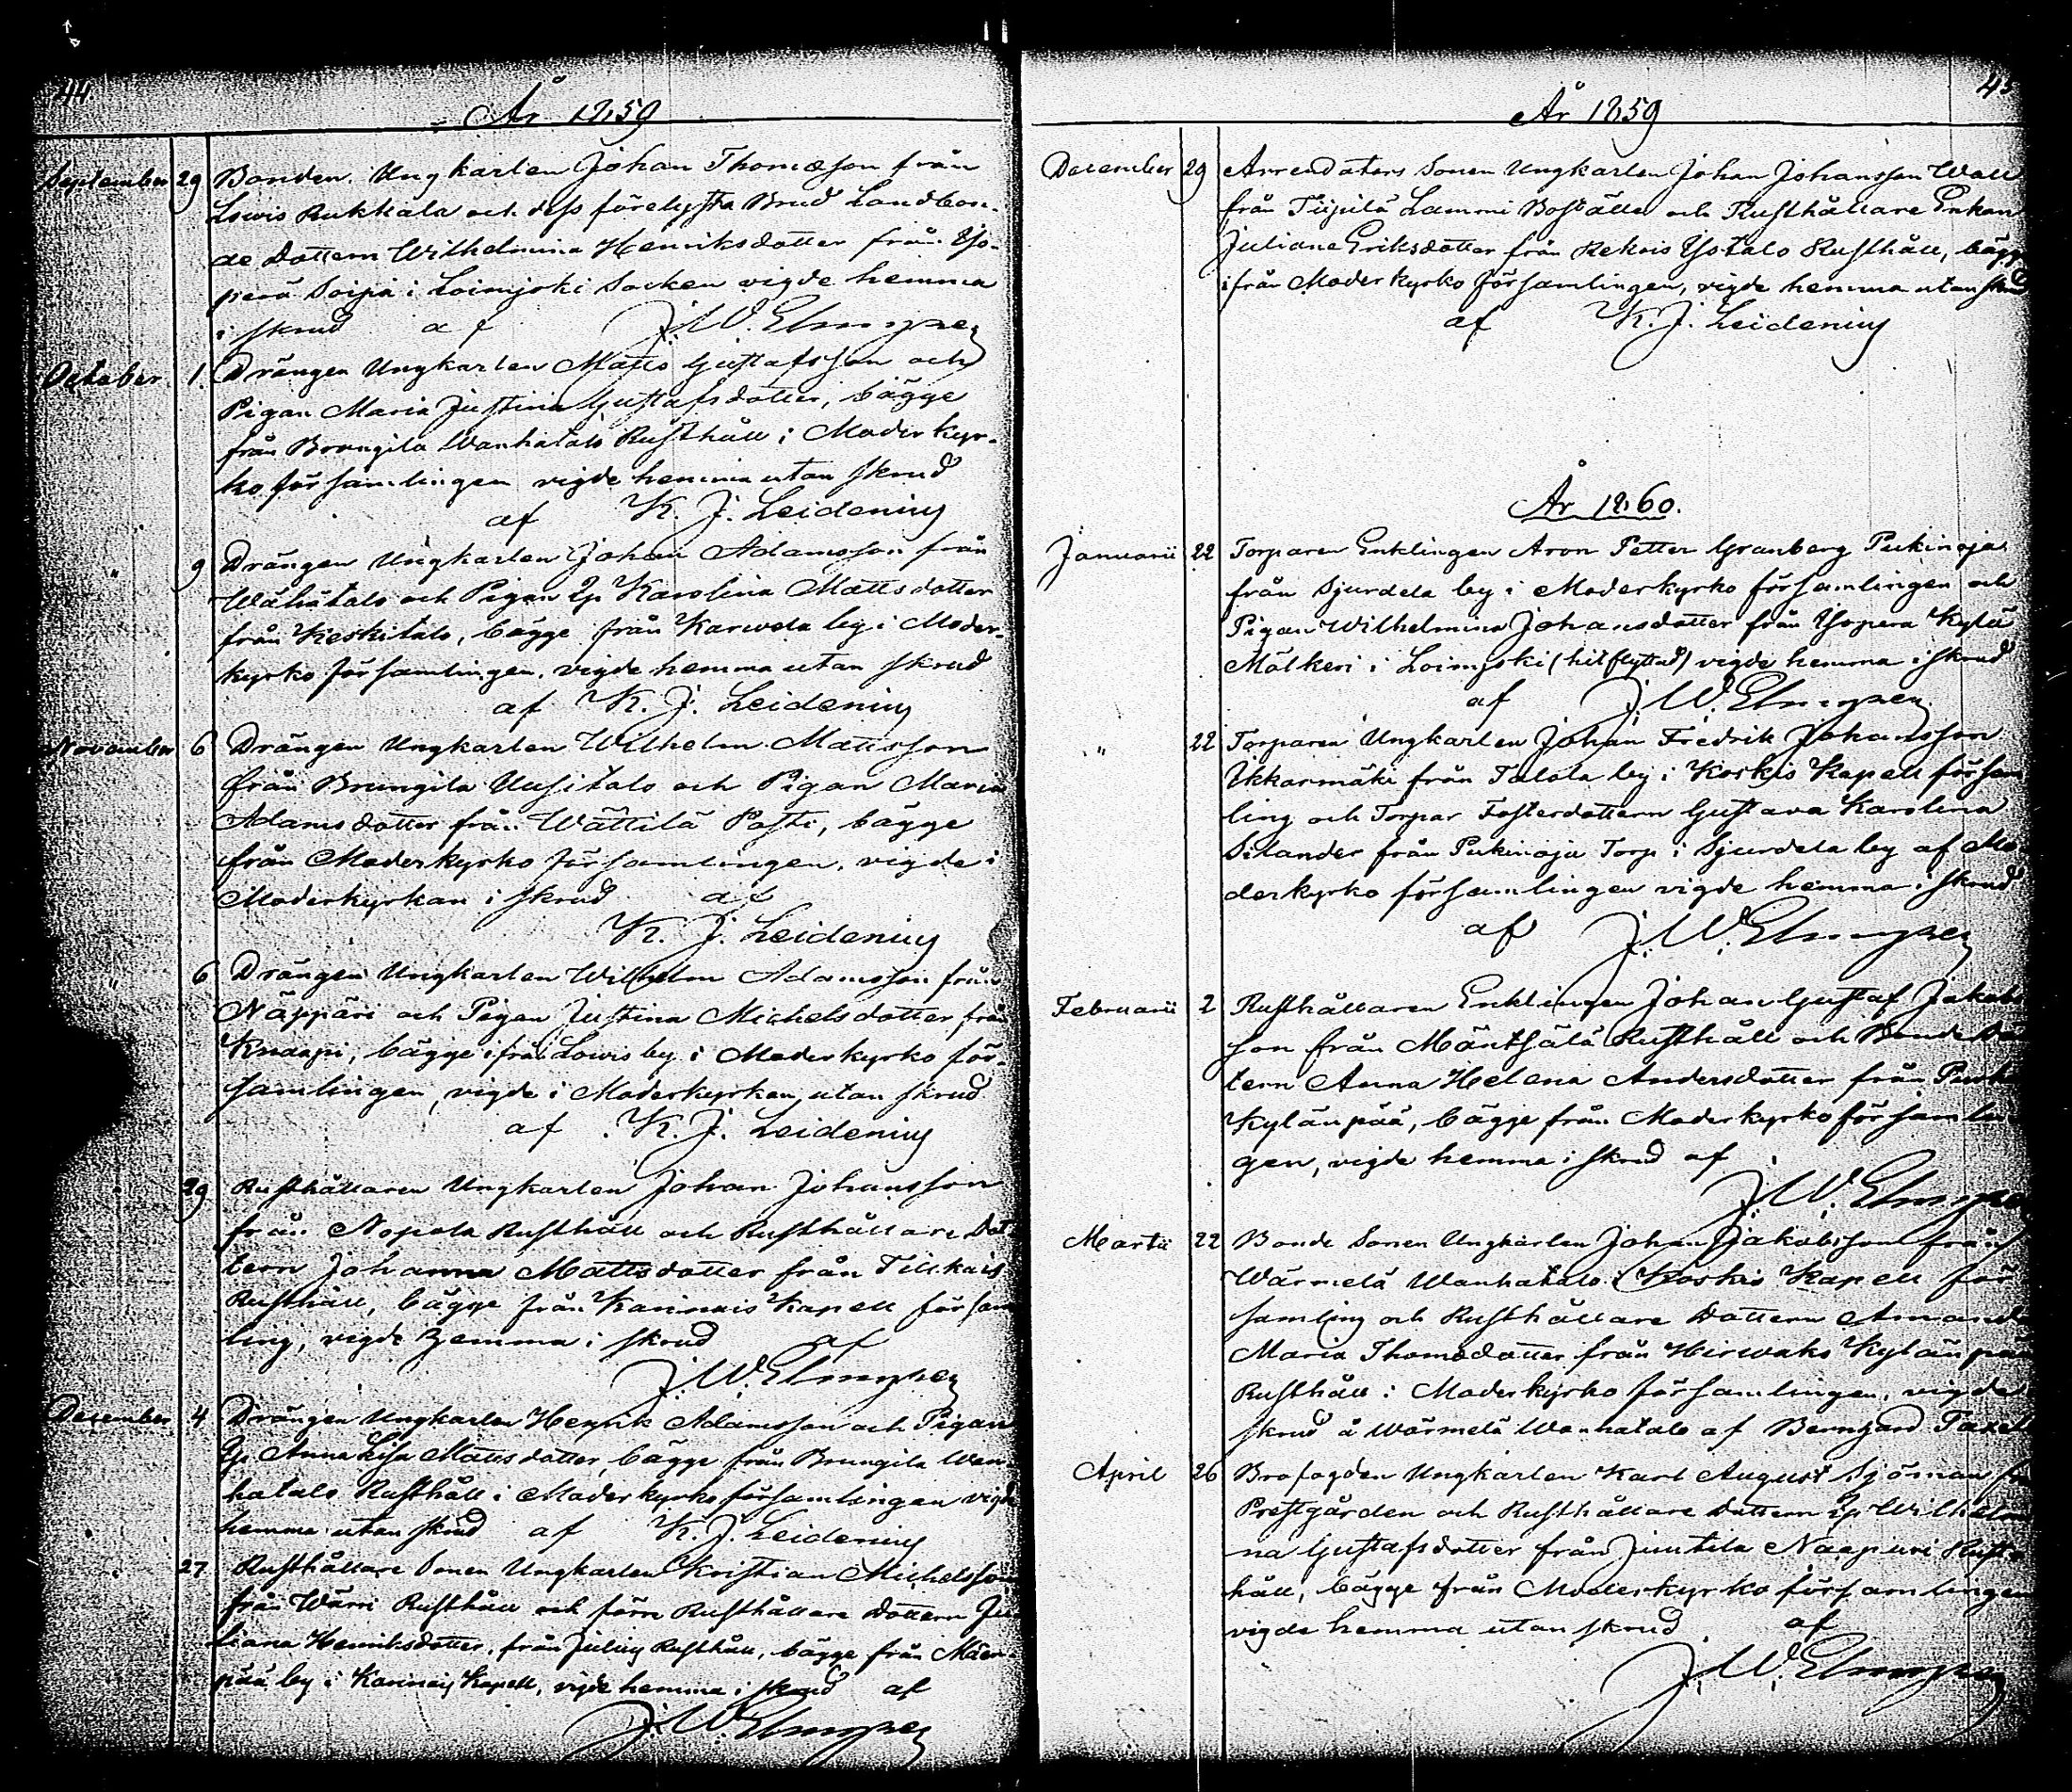 44.
År 1859
September 29 Bonden Ungkarlen Johan Thomæson från
Lowis Rukkala och dess förelysta Brud Landbon-
de Dottern Wilhelmina Henriksdotter från Yö-
perä Soipa i Loimjoki Socken vigde hemma
i skrud af J. W. Elmgren
October 1. Drängen Ungkarlen Matts Gustafsson och
Pigan Maria Justina Gustafsdotter, bägge
från Brungila Wanhatalo Rusthåll i Moderkyr-
ko församlingen vigde hemma utan skrud
af K. J. Leidenius
" 9 Drängen Ungkarlen Johan Adamsson från
Wähätalo och Pigan Qp. Karolina Mattsdotter
från Keskitalo, bägge från Karwela by i Moder-
kyrko församlingen, vigde hemma utan skrud
af K. J. Leidenius
November 6 Drängen Ungkarlen Wilhelm Mattsson
från Brungila Uusitalo och Pigan Maria
Adamsdotter från Wättilä Posti, bägge
från Moderkyrko församlingen, vigde i
Moderkyrkan i skrud af
K. J. Leidenius
" 6 Drängen Ungkarlen Wilhelm Adamsson från
Näppäri och Pigan Justina Michelsdotter från
Knaapi, bägge ifrån Lowis by i Moderkyrko för-
samlingen, vigde i Moderkyrkan utan skrud
af K. J. Leidenius
" 29 Rusthållaren Ungkarlen Johan Johansson
från Nopola Rusthåll och Rusthållare Dot-
tern Johanna Mattsdotter från Tiilikais
Rusthåll, bägge från Karinais Kapell försam
ling, vigde hemma i skrud af
J. W. Elmgren
December 4 Drängen Ungkarlen Henrik Adamsson och Pigan
Qp. Anna Lisa Mattsdotter, bägge från Brungila Wan-
hatalo Rusthåll i Moderkyrko församlingen vigde
hemma utan skrud af K. J. Leidenius
" 27 Rusthållare Sonen Ungkarlen Kristian Michelsson
från Wärri Rusthåll och förre Rusthållare Dottern Ju
liana Henriksdotter, från Juliuj Rusthåll, bägge från Mäen-
pää by i Karinaij Kapell, vigde hemma i skrud af
J. W. Elmgren
45
År 1859
December 29 Arrendators Sonen Ungkarlen Johan Johansson Wall
från Tiipilä Lammi Boställe och Rusthållare Enkan
Juliana Eriksdotter från Rekois Ylistalo Rusthåll, bägge
ifrån Moderkyrko församlingen, vigde hemma utan skrud
af K. J. Leidenius
År 1860.
Januarii 22 Torparen Enklingen Aron Petter Granberg Pukinoja
från Sjurdela by i Moderkyrko församlingen och
Pigan Wilhelmina Johansdotter från Ylöpera Kylä
Mälkeri i Loimjoki (hitflyttad) vigde hemma i skrud
af J. W. Elmgren
" 22 Torparen Ungkarlen Johan Fredrik Johansson
Ikkarmäki från Talola by i Koskis Kapell försam
ling och Torpar Fosterdottern Gustava Karolina
Silander från Pukinoja Torp i Sjurdela by af Mo
derkyrko församlingen vigde hemma i skrud
af J. W. Elmgren
Februarii 2 Rusthållaren Enklingen Johan Gustaf Jakobs
son från Mäntsälä Rusthåll och Bonde Dot
tern Anna Helena Andersdotter från
Kylänpää, bägge från Moderkyrko församlin
gen, vigde hemma i skrud af
J. W. Elmgren
Martii 22 Bonde Sonen Ungkarlen Johan Jakobsson från
Wärmelä Wanhatalo i Koskis Kapell för
samling och Rusthållare Dottern Amanda
Maria Thomædotter från Hirwaks Kylänpää
Rusthåll i Moderkyrko församlingen, vigde
skrud å Wärmelä Wanhatalo af Berngard Taxell
April 26 Brofogden Ungkarlen Karl August Sjöman från
Prestgården och Rusthållare Dottern Qp. Wilhelmi
na Gustafsdotter från Juntila Naapuri Rust-
håll, bägge från Moderkyrko församlingen
vigde hemma utan skrud af
J. W. Elmgren